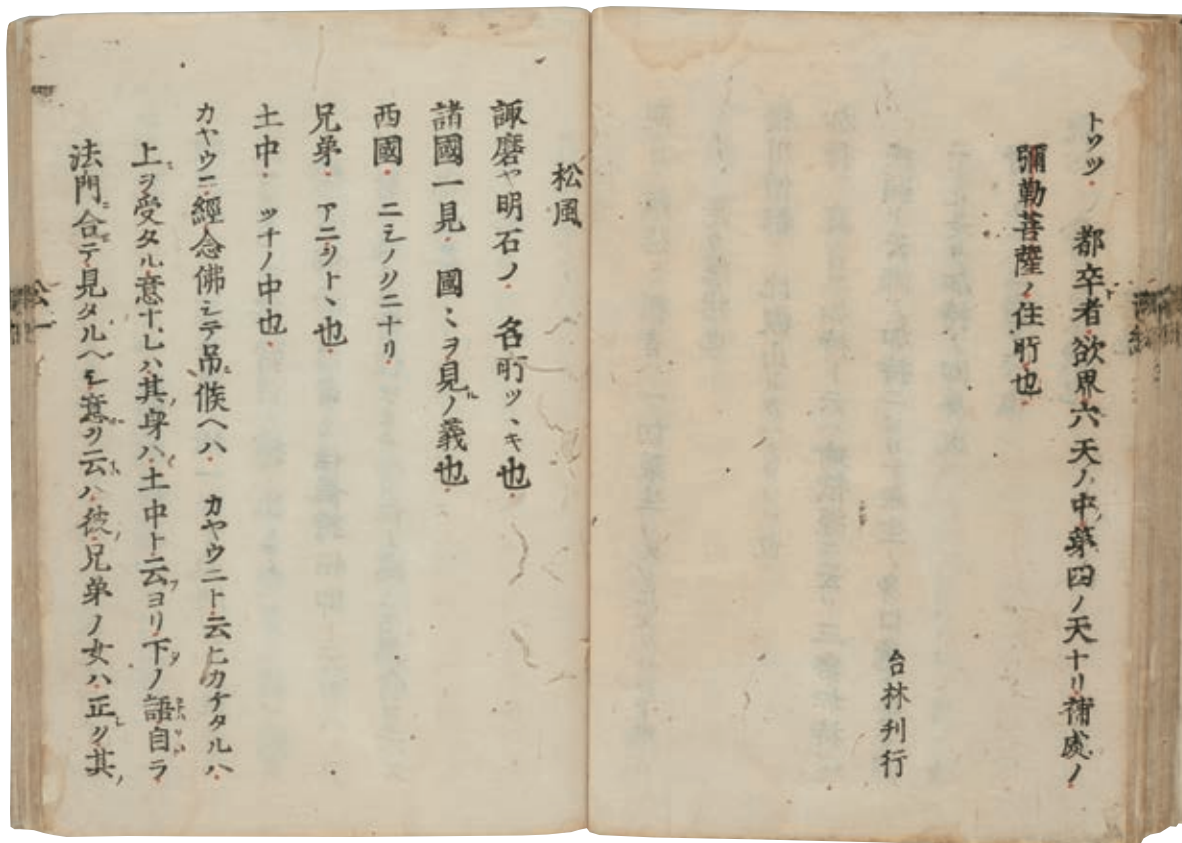 トソツ 都卒者欲界六天ノ中第四ノ天ナリ補處ノ
彌勒菩薩ノ住所也
台林刊行
松風
諏磨ヤ明石ノ 名所ツヽキ也
諸國一見 國〻ヲ見ルノ義也
西國 ニシノクニナリ
兄弟 アニヲトヽ也
土中 ツチノ中也
カヤウニ經念佛シテ吊候ヘハ カヤウニト云ヒカケタルハ
上ヲ受タル意ナレハ其身ハ土中ト云ヨリ下ノ語自ラ
法門ニ合テ見タルヘシ意ヲ云ハ彼ノ兄弟ノ女ハ正ク其ノ